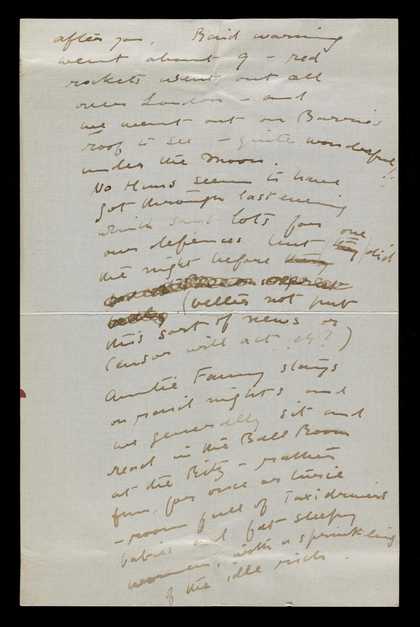 after you. Raid warning
went about 9 – red
rockets went out all
over London – and
we went out on Barrie's
roof to see – quite wonderful
under the moon. !!
No Huns seem to have
got through last evening
which lots for
our defences but one
the night before they did
(better not put
this sort of news or
Censor will act, eh?)
Auntie Fanny stays
on raid nights and
we generally sit and
read in the Ball Room
at the Ritz – rather
fun, for once or twice
– room full of Taxidrivers
babies and fat sleepy
women, with a sprinkling
of the idle rich.